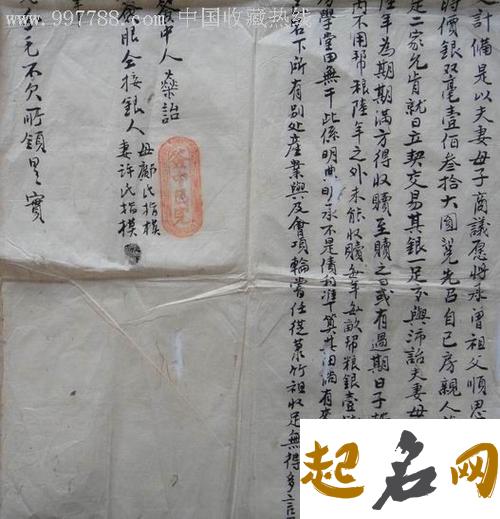 www.997788.com 中国收藏热线
之計備是以夫妻母子商議愿將承曾祖父順思
時價銀双毫壹佰叁拾大圓凭先召自己房親人
是二家允肯就日立契交易其銀一足交與沛詒夫妻母
年為期期滿方得收贖至贖之日或有過期日子
内不用帮粮陸年之外未能收贖每年每畝帮粮銀壹
學堂田無干此係明典明承不是債折準算其田倘有
名下所有别处產業與及會項輪嘗任從慕竹祖收足無得多言
中人燊詒
眼仝接銀人
母鄺氏指模
妻許氏指模
子毛不欠所領是實
起名网